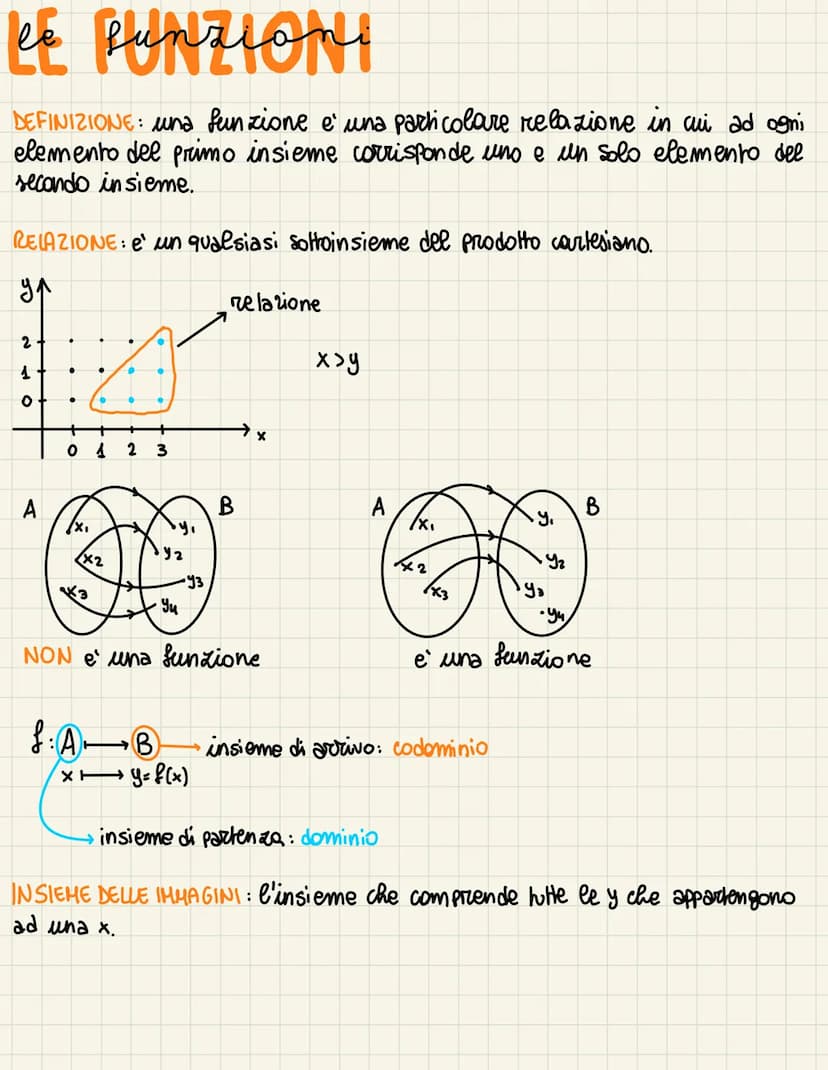 LE FUNZIONI
le funzioni
DEFINIZIONE: una funzione e' una particolare relazione in cui ad ogni
elemento del primo insieme corrisponde uno e un solo elemento del
secondo insieme.
RELAZIONE: e' un qualsiasi sottoinsieme del prodotto cartesiano.
y
relazione
2
1
0
x>y
x
0 1 2 3
A B
x₁
x₂
x₃
y₁
y₂
y₃
y₄
A B
x₁
x₂
x₃
y₁
y₂
y₃
y₄
NON e' una funzione
e' una funzione
f: A ⟼ B → insieme di arrivo: codominio
x ⟼ y=f(x)
insieme di partenza: dominio
INSIEME DELLE IMMAGINI: l'insieme che comprende tutte le y che appartengono
ad una x.